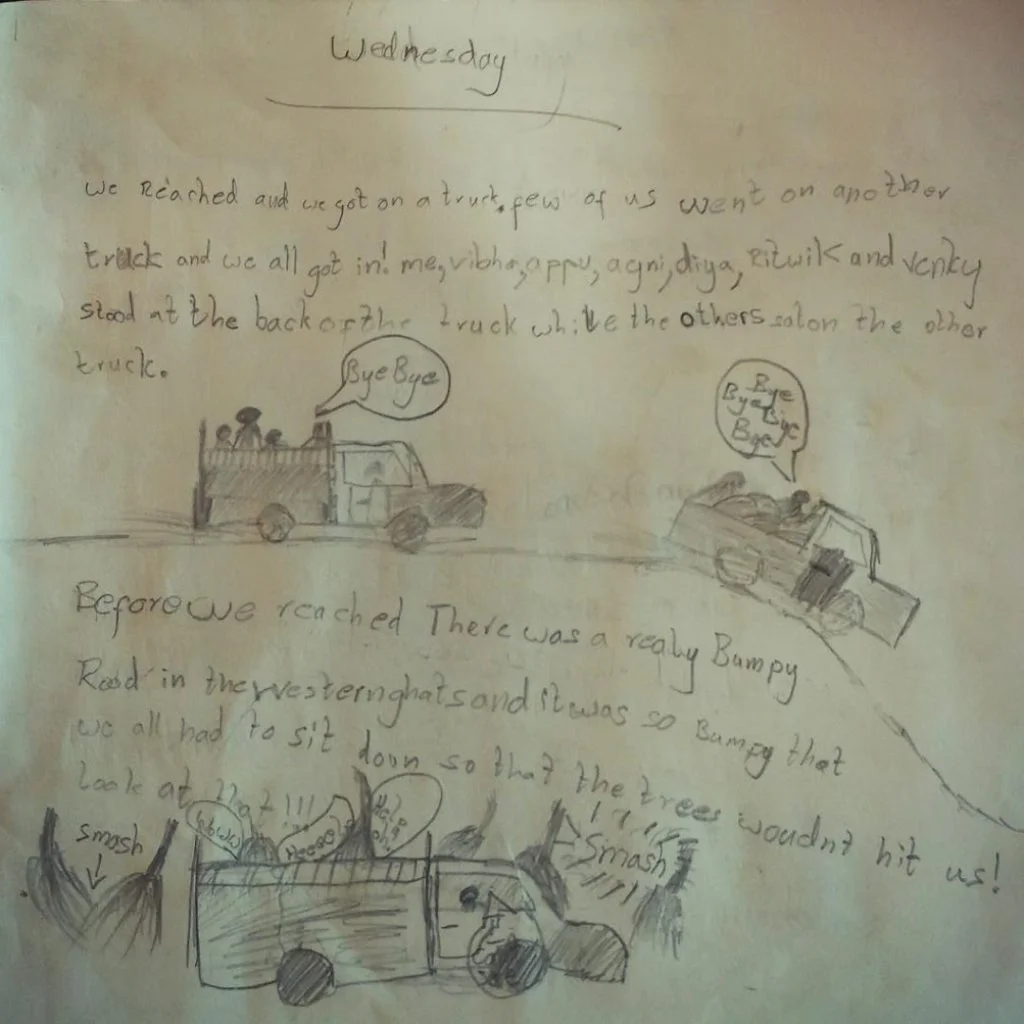 Wednesday
we Reached and we got on a truck. few of us went on another
truck and we all got in! me, vibha, appu, agni, diya, Ritwik and venky
stood at the back of the truck while the others sat on the other
truck.
Bye Bye
Bye
Bye Bye
Bye
Before we reached There was a realy Bumpy
Road in the western ghats and it was so Bumpy that
we all had to sit down so that the trees woudnt hit us!
Look at that!!!
smash
Help
Smash